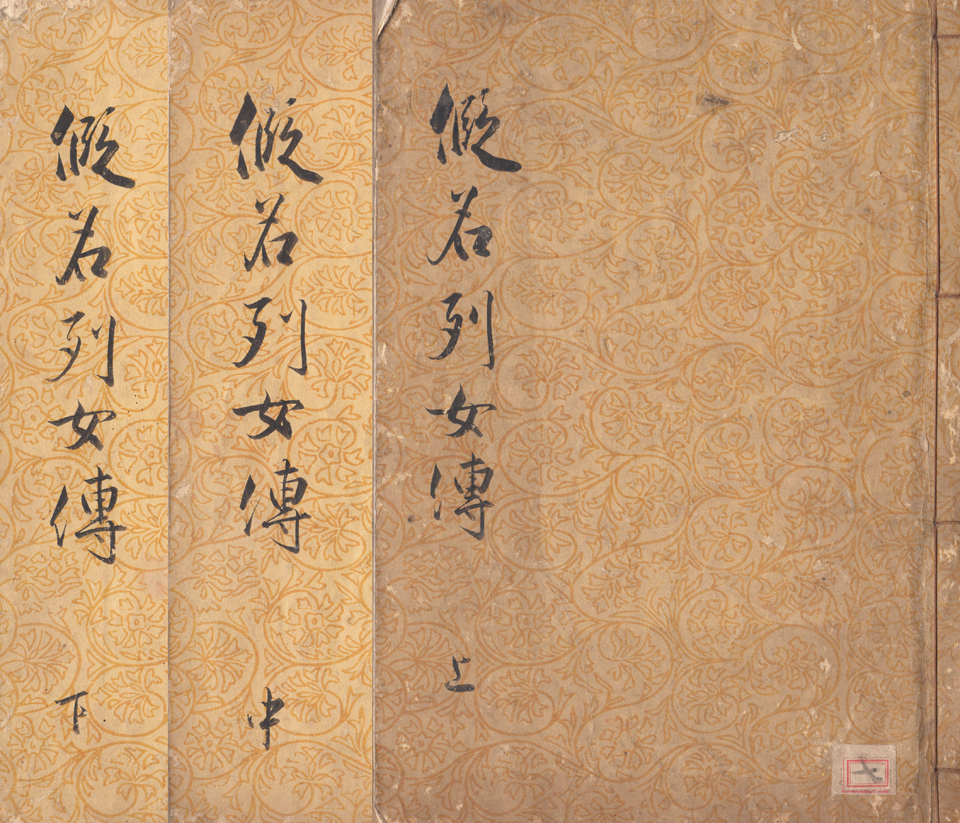 假名列女傳 上
假名列女傳 中
假名列女傳 下